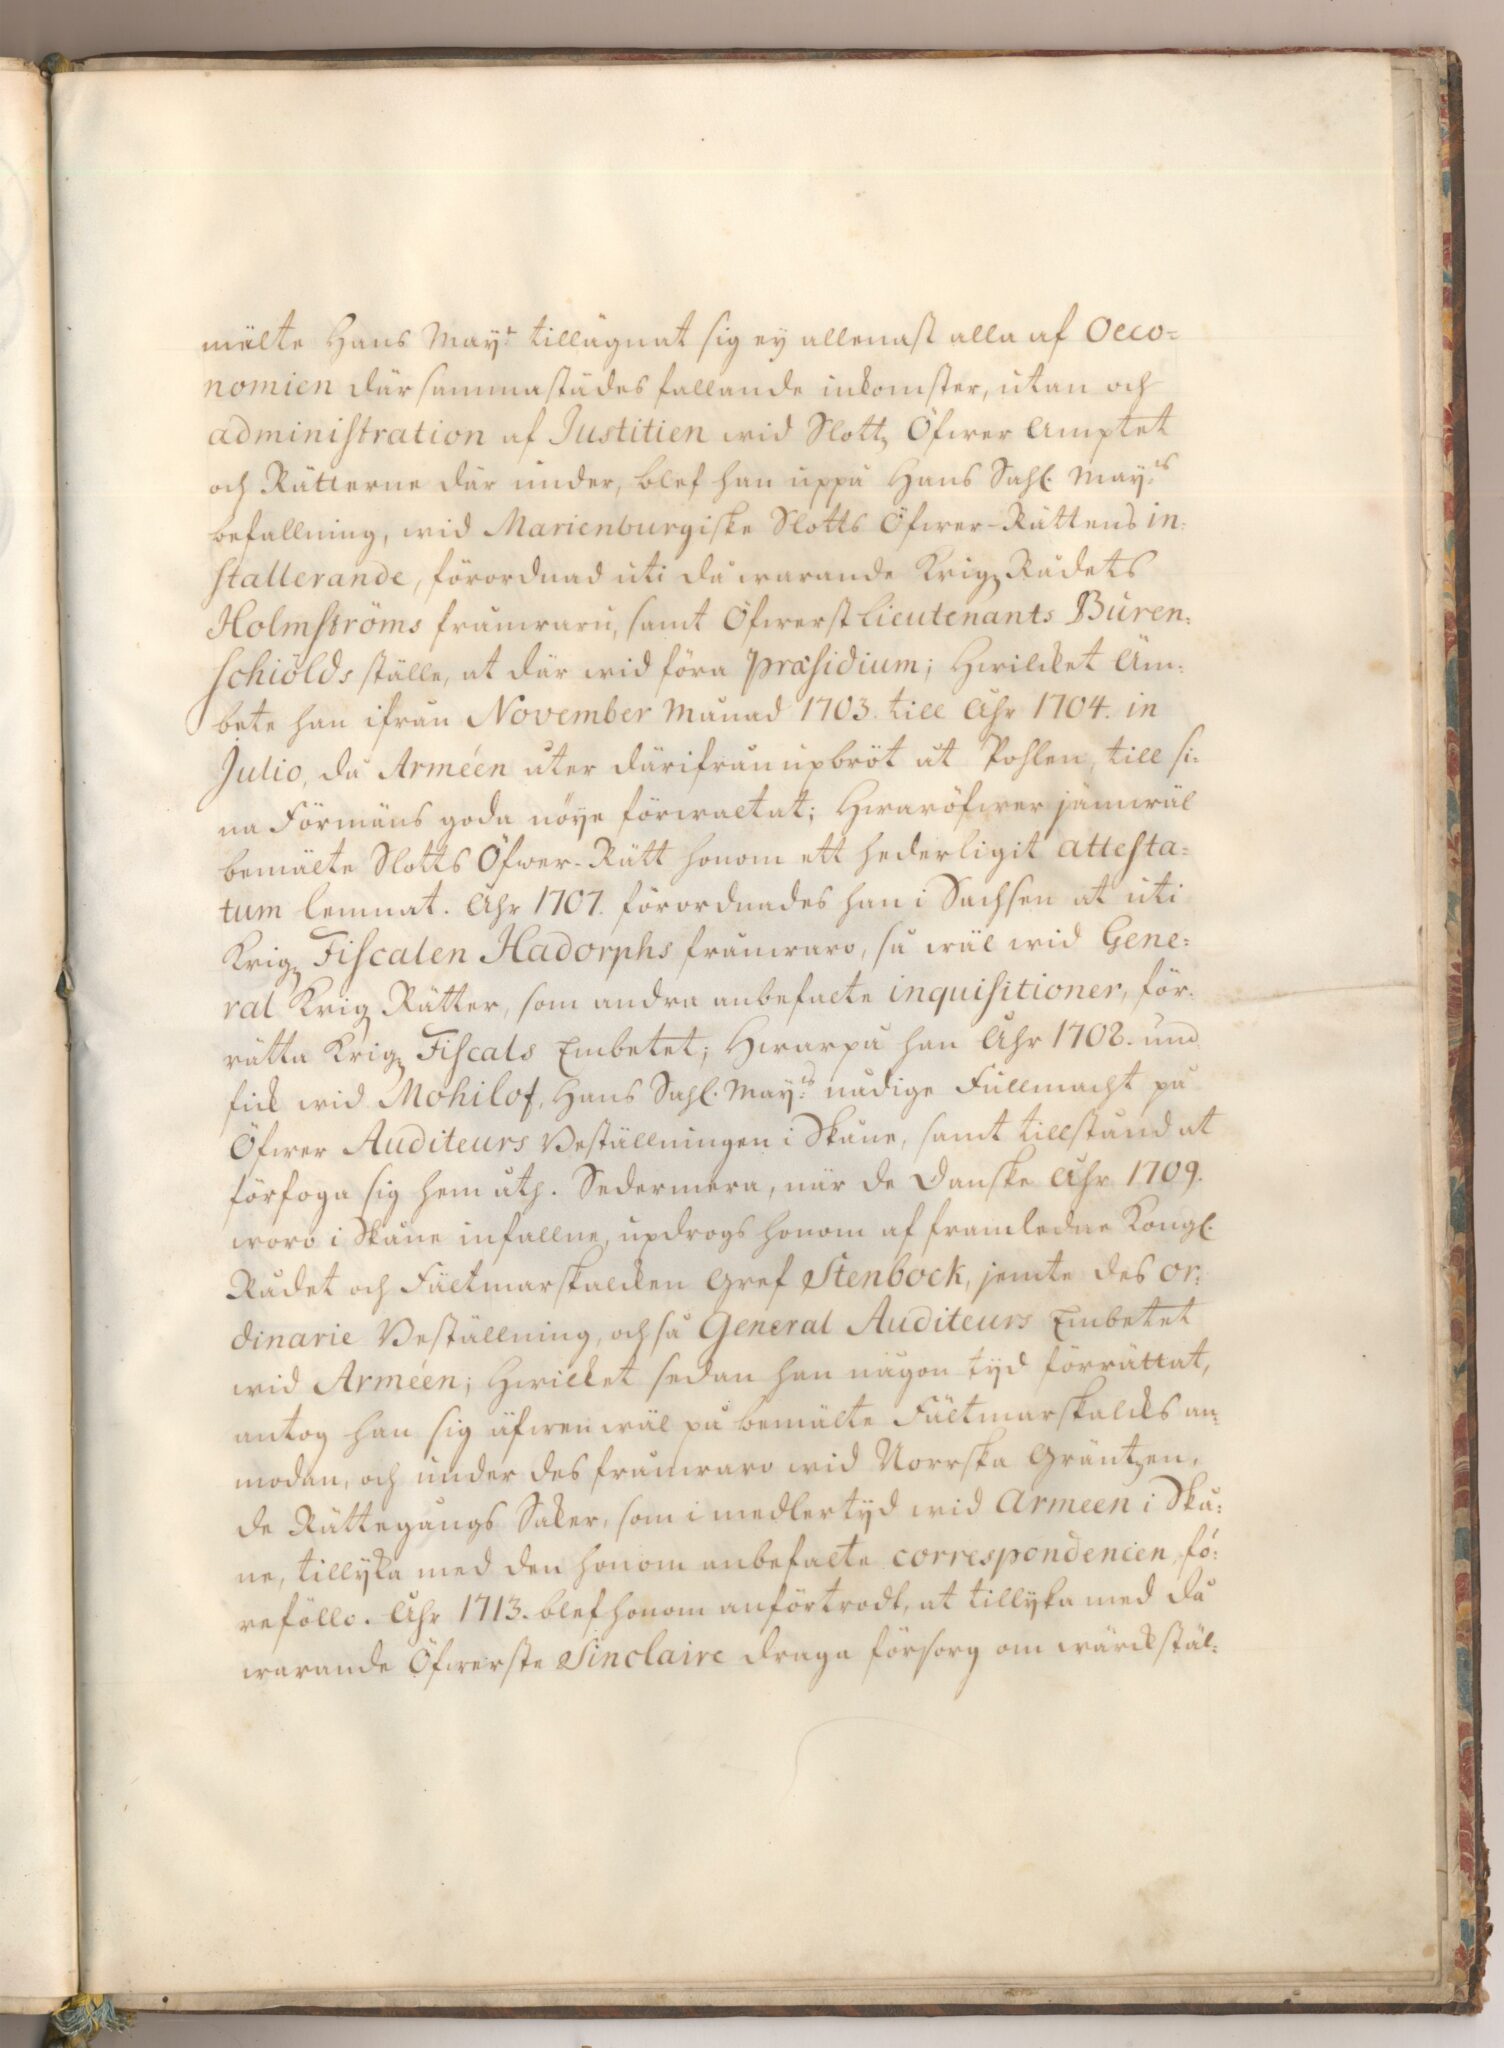 mälte Hans May:t tillägnat sig ey allenast alla af Oeco=
nomien där sammastädes fallande inkomster, utan och
administration af Justitien wid Slottz Öfwer Amptet
och Rätterne där under, blef han uppå Hans Sahl. May:ts
befallning, wid Marienburgiske Slotts Öfwer-Rättens in=
stallerande, förordnad uti då warande Krigz Rådets
Holmströms frånwaru, samt Öfwerst Lieutenants Buren=
schiölds ställe, at där wid föra præsidium; Hwilcket Äm=
bete han ifrån November Månad 1703. till Åhr 1704. in
Julio, då Arméen åter därifrån upbröt åt Pohlen, till si=
na Förmäns goda nöye förwaltat; Hwaröfwer jämwäl
bemälte Slotts Öfwer-Rätt honom ett hederligit attesta=
tum lemnat. Åhr 1707. förordnades han i Sachsen at uti
Krigz Fiscalen Hadorphs frånwaro, så wäl wid Gene=
ral Krigz Rätter, som andra anbefalte inquisitioner, för=
rätta Krigz Fiscals Embetet; Hwarpå han Åhr 1708. und
fick wid Mohilof, Hans Sahl. May:ts nådige Fullmacht på
Öfwer Auditeurs Beställningen i Skåne, samt tillstånd at
förfoga sig hem åth. Sedermera, när de Danske Åhr 1709.
woro i Skåne infallne, updrogs honom af framledne Kongl.
Rådet och Fältmarskalcken Gref Stenbock, jemte des or=
dinarie Beställning, också General Auditeurs Embetet
wid Arméen; Hwilcket sedan han någon tyd förrättat,
antog han sig äfwen wäl på bemälte Fältmarskalcks an=
modan, och under des frånwaro wid Norrska Gräntzen,
de Rättegångs Saker, som i medlertyd wid Armeen i Skå=
ne, tillyka med den honom anbefalte correspondencen, fö=
reföllo. Åhr 1713. blef honom anförtrodt, at tillyka med då
warande Öfwerste Sinclaire draga försorg om wärckstäl=